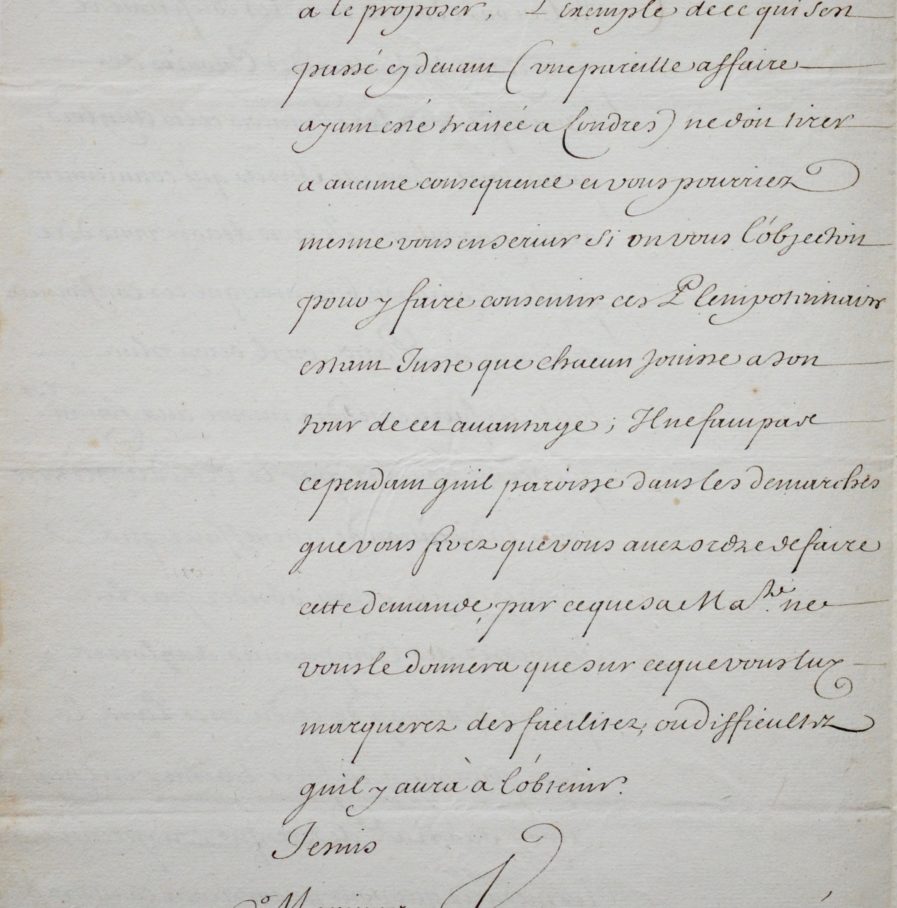 a le proposer, L'Exemple de ce qui s'en
passé cy devant (une pareille affaire
ayant esté traitée a Londres) ne doit tirer
a aucune consequence et vous pourriez
mesme vous en servir si on vous l'objectoit
pour y faire consentir ces Plenipotentiaires
estant Juste que chacun Jouisse a son
tour de cet avantage; Il ne faut pas
cependant qu'il paroisse dans les demarches
que vous ferez que vous avez ordre de faire
cette demande, par ce que sa Ma.té ne
vous le donnera que sur ce que vous luy
marquerez des facilitez, ou difficultez
qu'il y aura à l'obtenir.
Je suis
Monsieur